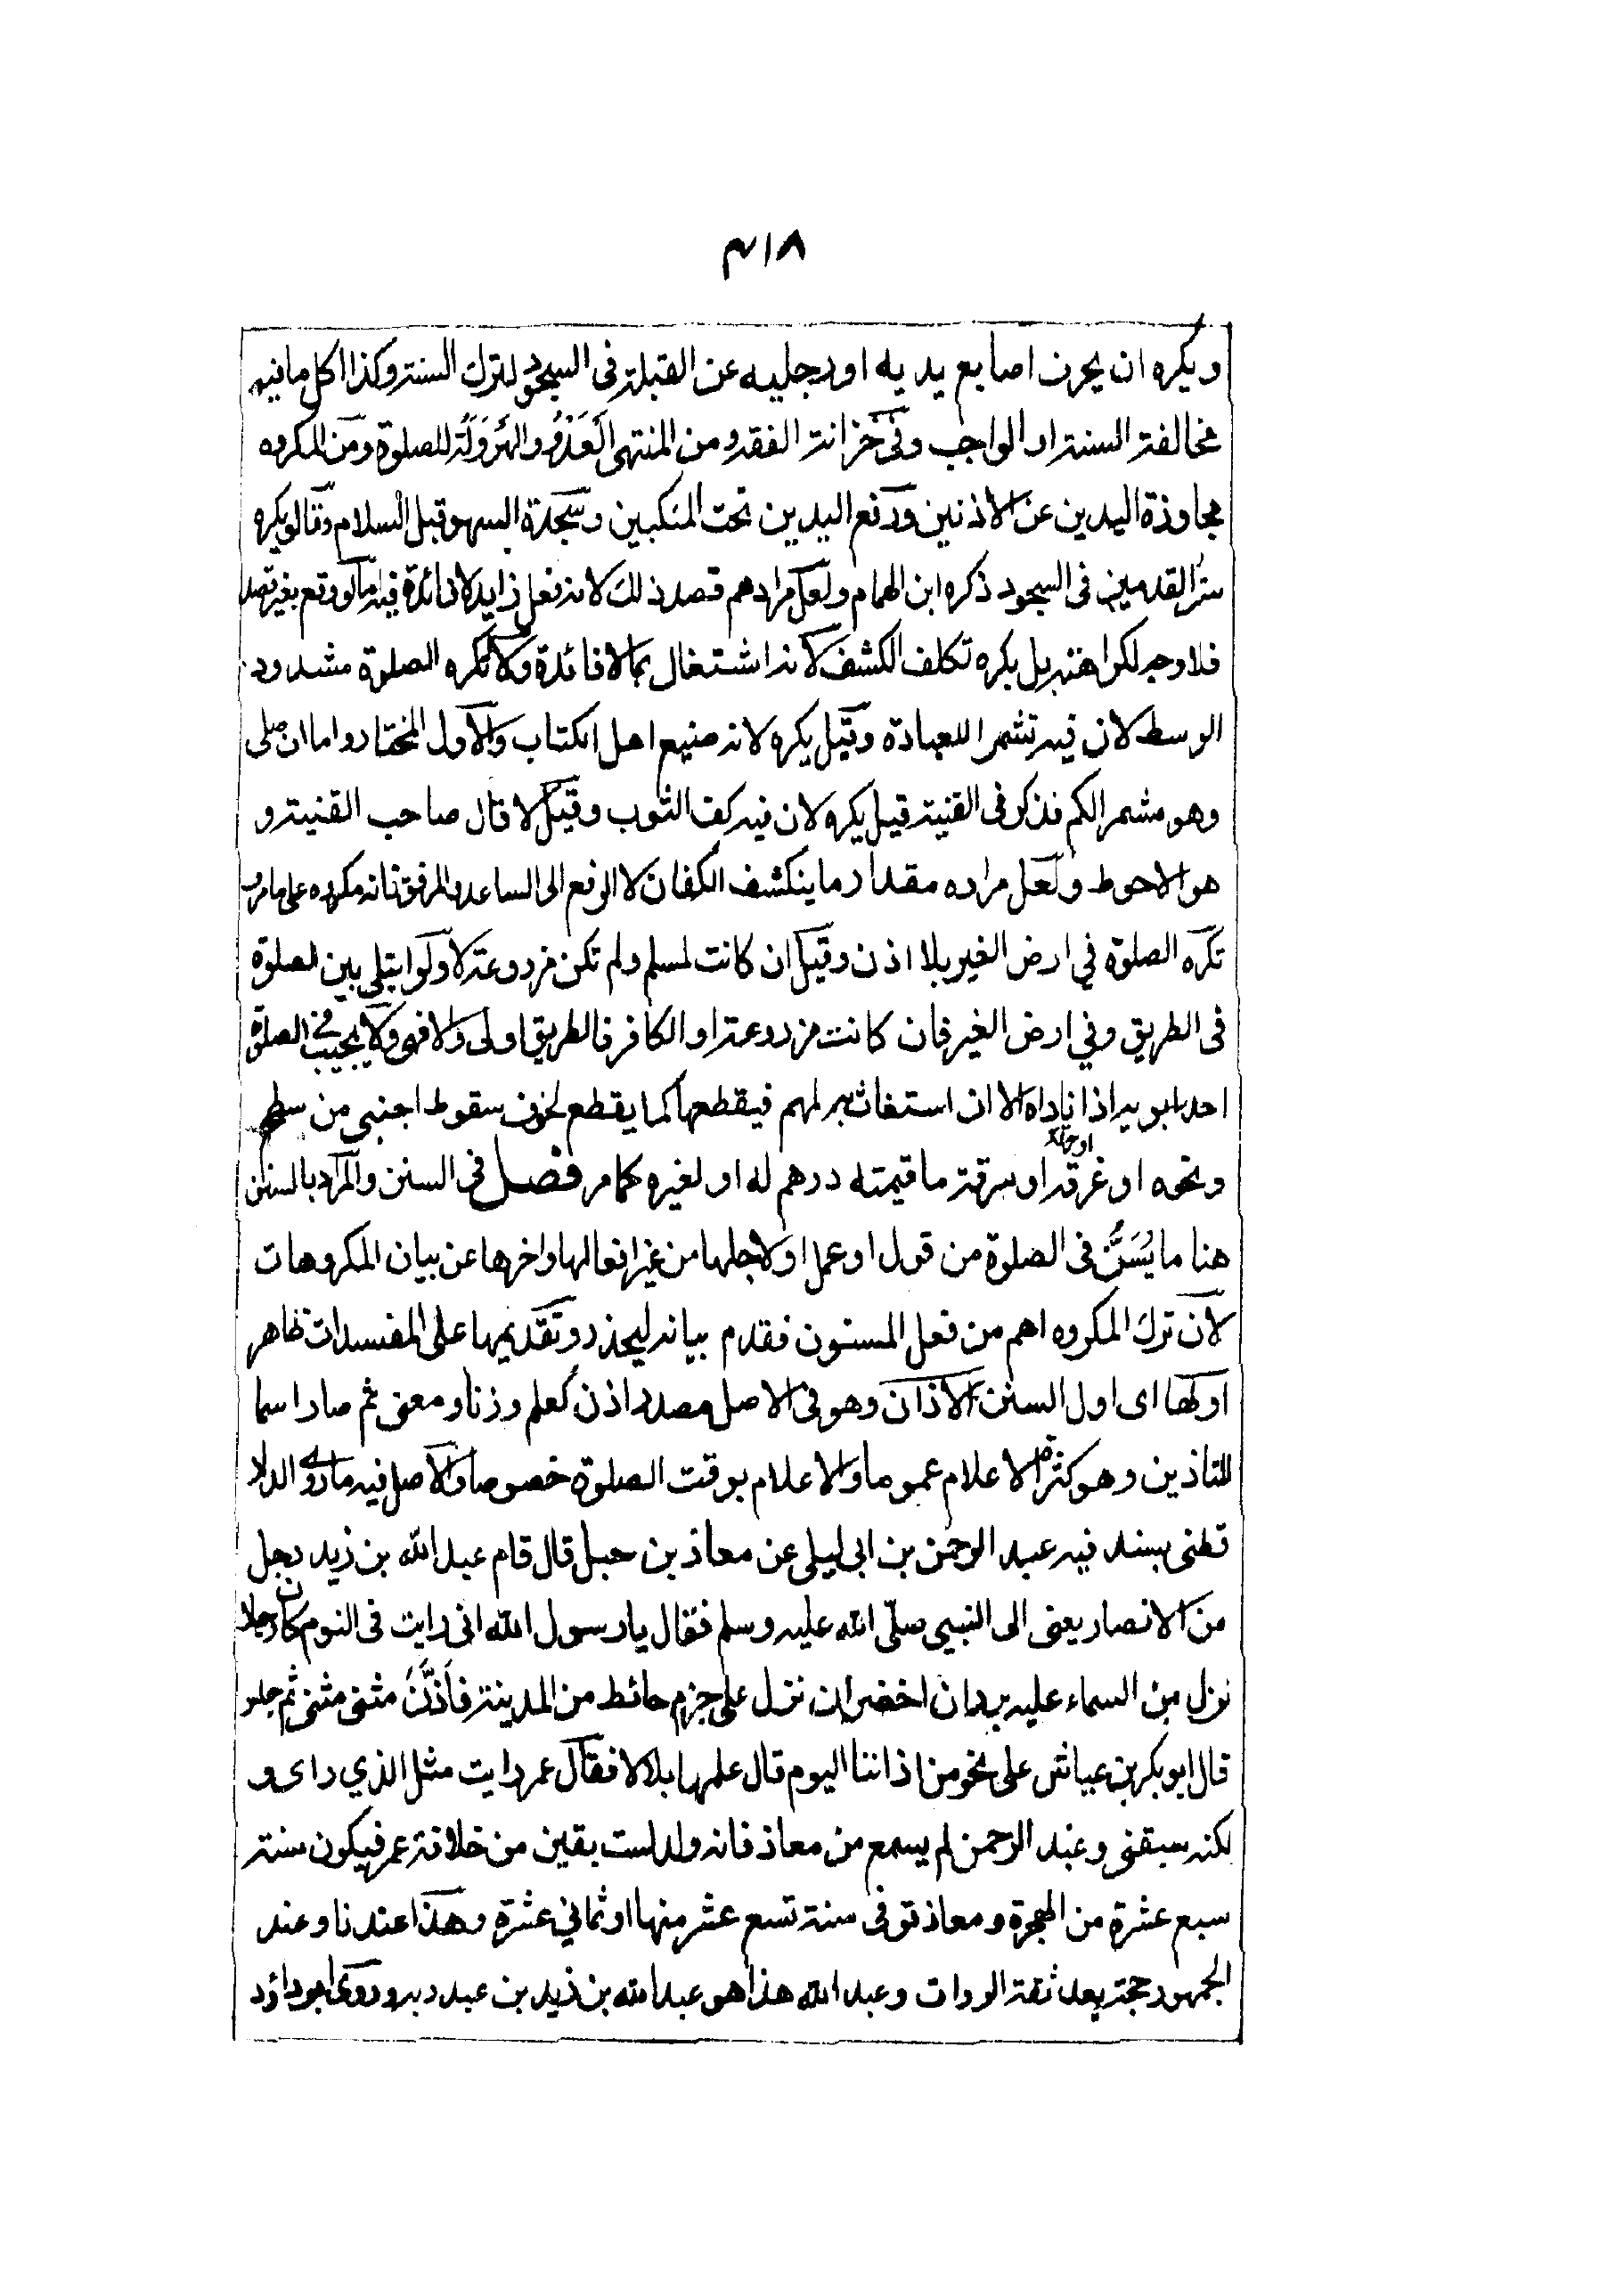 ٣١٨
ويكره ان يحرف اصابع يديه اورجليه عن القبلة فى السجود لترك السنة وكذا كل ما فيه
مخالفة السنة او الواجب وفى خزانة الفقه ومن المنتهى اَلْعَدْوُ والْهَرْوَلَةُ للصلوة ومن المكروه
مجاوزة اليدين عن الاذنين ورفع اليدين تحت المنكبين وسجدة السهو قبل السلام وقالو يكره
ستر القدمين فى السجود ذكره ابن الهمام ولعل مرادهم قصد ذلك لانه فعل زايد لا فائدة فيه اما لو وقع بغير قصد
فلا وجه لكراهته بل يكره تكلف الكشف لانه اشتغال بما لا فائدة ولا تكره الصلوة مشدود
الوسط لان فيه تشمرا للعبادة وقيل يكره لانه صنيع اهل الكتاب والاول المختار واما ان صلى
وهو مشمر الكم فذكر فى القنية قيل يكره لان فيه كف الثوب وقيل لا قال صاحب القنية و
هو الاحوط ولعل مراده مقدار ما ينكشف الكفان لا الرفع الى الساعد والمرفق فانه مكروه على ما مر و
تكره الصلوة في ارض الغير بلا اذن وقيل ان كانت لمسلم ولم تكن مزروعة لا ولو ابتلى بين الصلوة
فى الطريق وفي ارض الغير فان كانت مزروعة او الكافر فالطريق اولى والا فهى ولا يجيب فى الصلوة
احد ابويه اذا ناداه الا ان استغاث به لمهم فيقطعها كما يقطع لخوف سقوط اجنبى من سطح
ونحوه او غرقه او حرقه او سرقة ما قيمته درهم له او لغيره كما مر فصل فى السنن والمراد بالسنن
هنا ما يُسَنُّ فى الصلوة من قول او عمل او لاجلها من غير افعالها واخرها عن بيان المكروهات
لان ترك المكروه اهم من فعل المسنون فقدم بيانه ليحذر وتقديمها على المفسدات ظاهر
اولها اى اول السنن الاذان وهو فى الاصل مصدر اذن كعلم وزنا ومعنى ثم صار اسما
للتاذين وهو كثرة الاعلام عموما والاعلام بوقت الصلوة خصوصا والاصل فيه ما روى الدار
قطنى بسند فيه عبد الرحمن بن ابى ليلى عن معاذ بن جبل قال قام عبد الله بن زيد رجل
من الانصار يعنى الى النبي صلّى الله عليه وسلم فقال يا رسول الله انى رايت فى النوم كان رجلا
نزل من السماء عليه بردان اخضران نزل على جزم حائط من المدينة فأَذَّنَ مثنى مثنى ثم جلس
قال ابو بكر بن عياش على نحو من اذاننا اليوم قال علمها بلالا فقال عمر رايت مثل الذي راى و
لكنه سبقنى وعبد الرحمن لم يسمع من معاذ فانه ولد لست بقين من خلافة عمر فيكون سنة
سبع عشرة من الهجرة ومعاذ توفى سنة تسع عشر منها او ثماني عشرة وهذا عندنا وعند
الجمهور حجة بعد ثقة الروات وعبد الله هذا هو عبد الله بن زيد بن عبد ربه وروى ابو داؤد